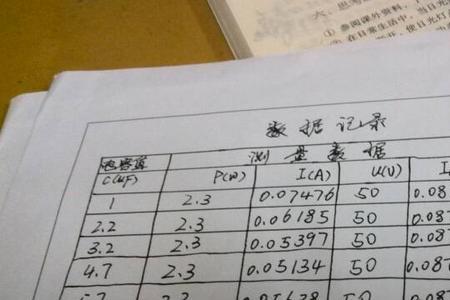 六、思考
① 参阅课外资料,
② 在日常生活中,当日光灯
使日光灯
数据记录
电容值 测量数据
C(μF) P(W) I(A) U(V)
1 2.3 0.07476 50 0.08
2.2 2.3 0.06185 50 0.08
3.2 2.3 0.05397 50 0.08
4.7 2.3 0.05134 50 0.08
2.3 50